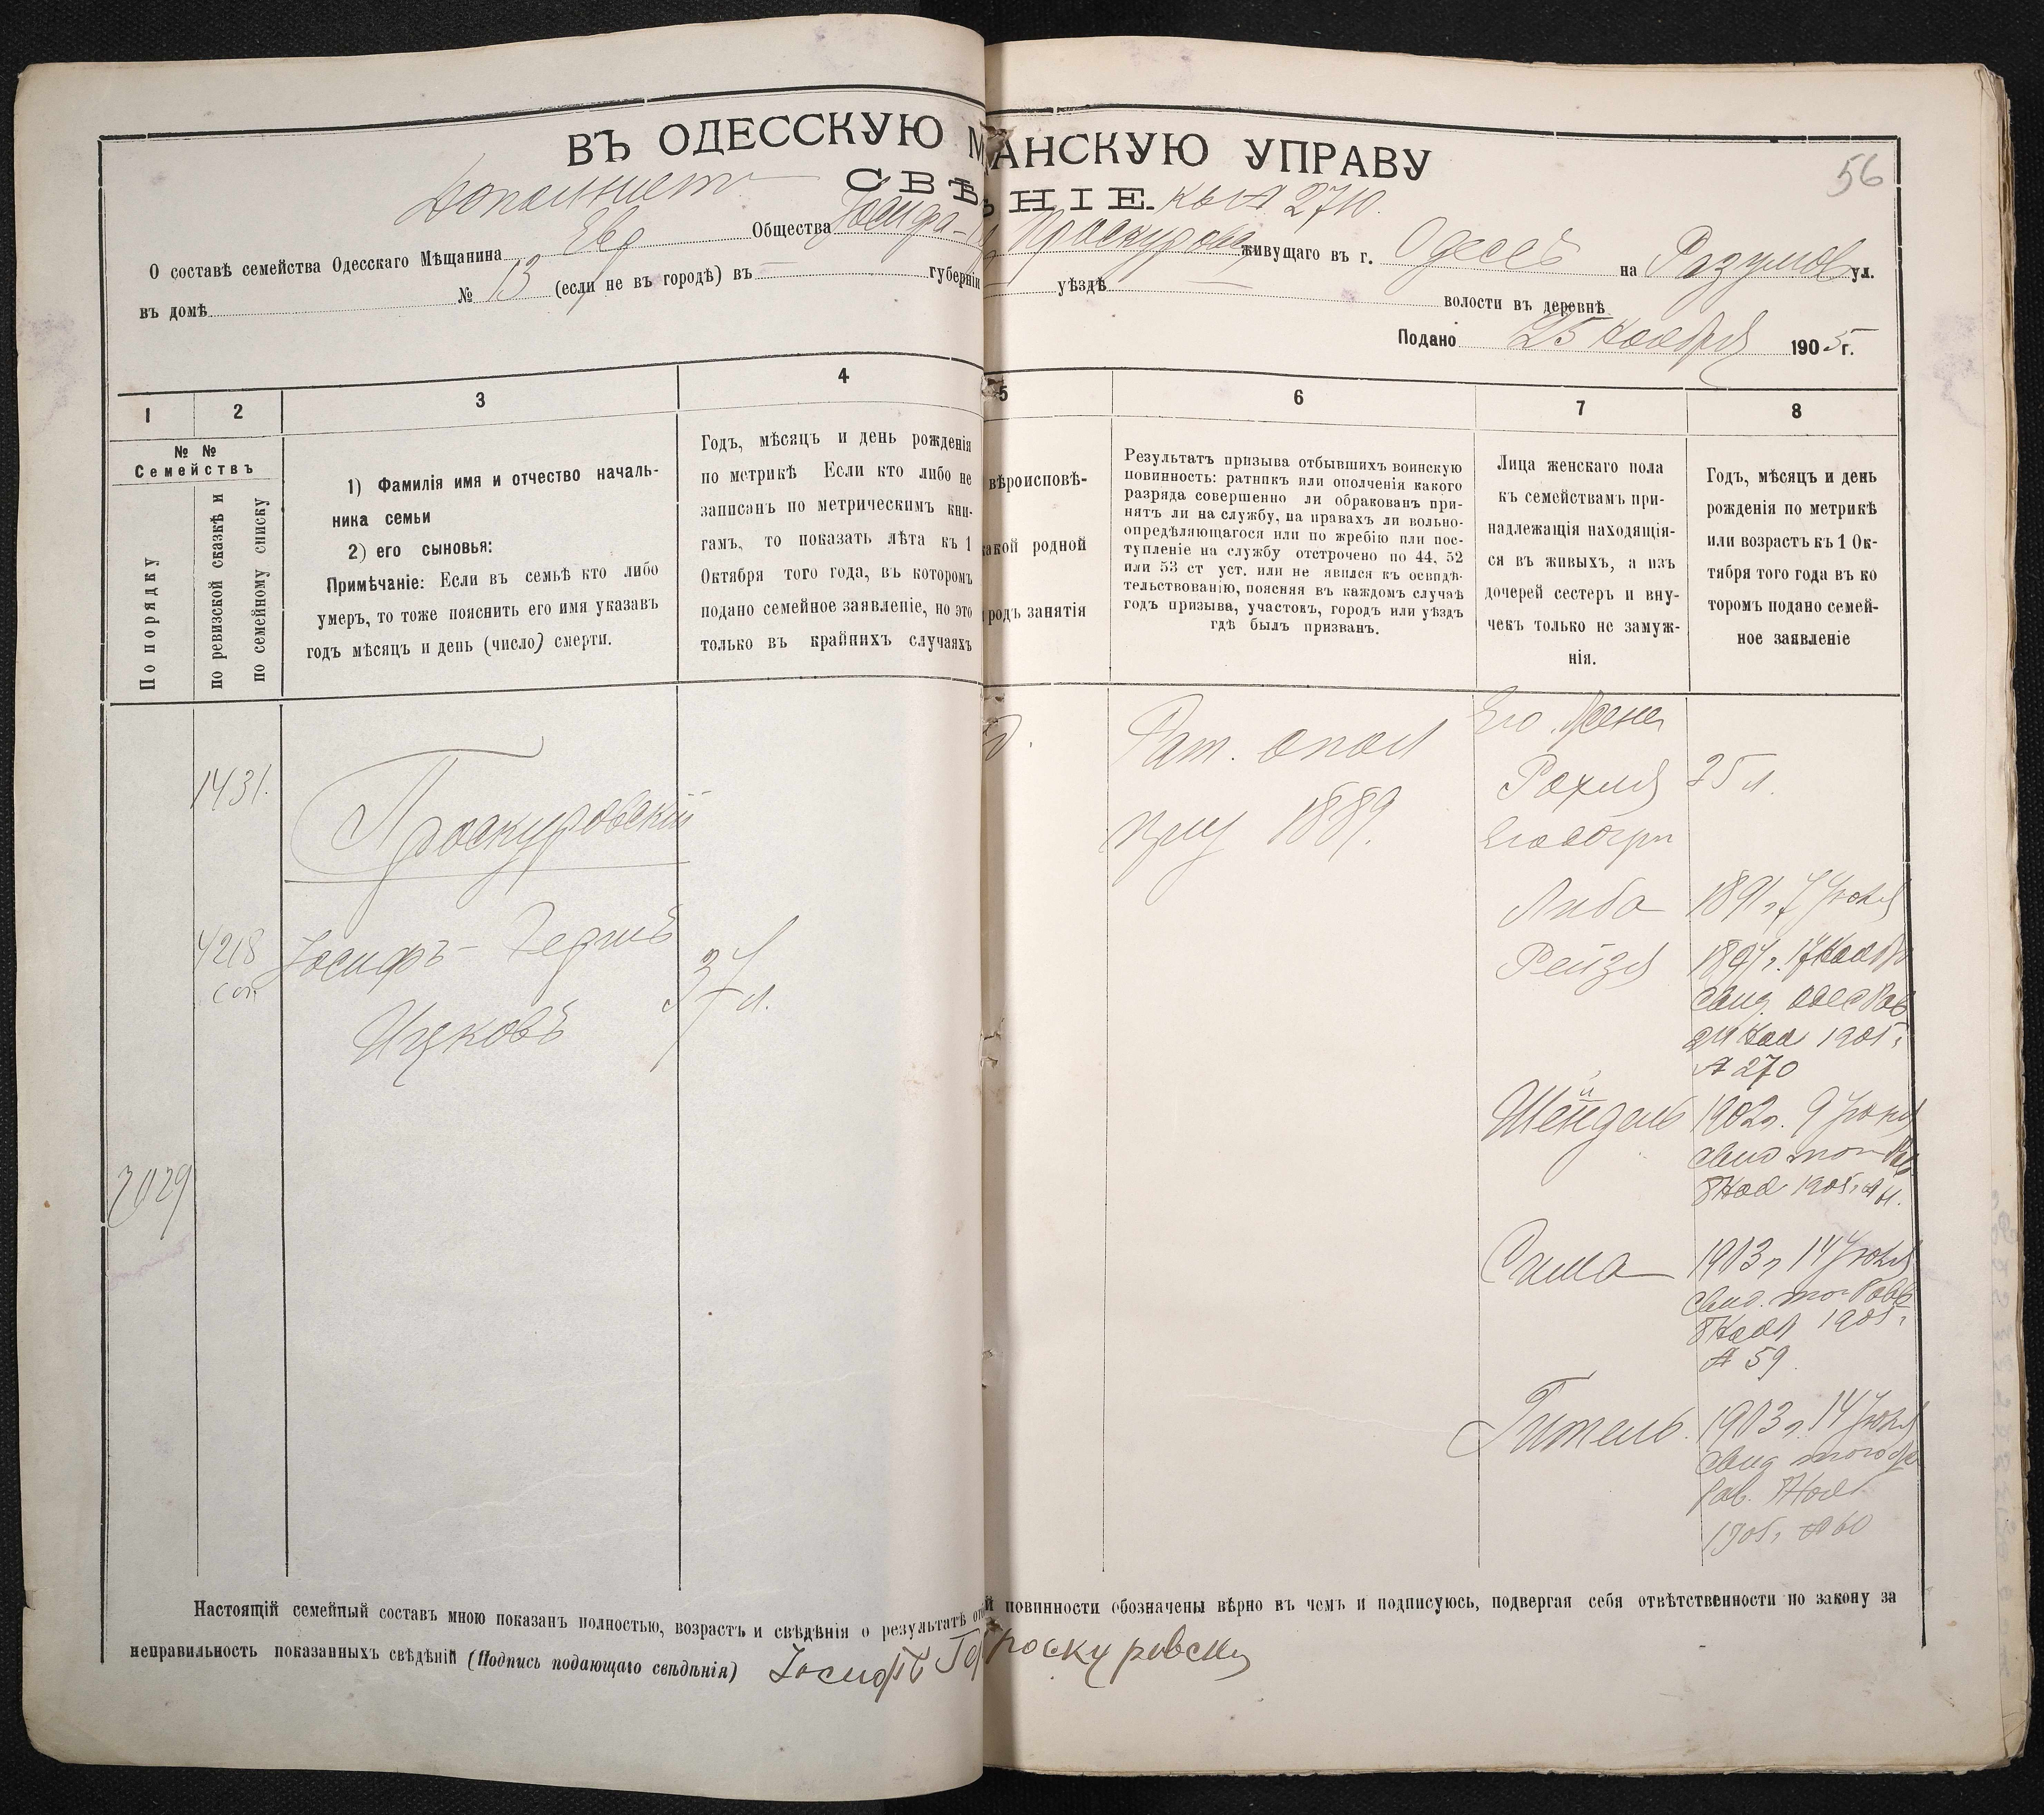 ВЪ ОДЕССКУЮ М АНСКУЮ УПРАВУ
56
СВѢ НІЕ. 2710.
О составѣ семейства Одесскаго Мѣщанина Евр Общества Іосифа- Проскуровс живущаго въ г. Одессѣ на Разумов ул.
въ домѣ № 13 (если не въ городѣ) въ — губерніи уѣздѣ — волости въ деревнѣ
Подано 25 Ноября 1905 г.
1 2 3 4 5 6 7 8
№ №
Семействъ
По порядку
по ревизской сказкѣ и
по семейному списку
1) Фамилія имя и отчество началь-
ника семьи
2) его сыновья:
Примѣчаніе: Если въ семьѣ кто либо
умеръ, то тоже пояснить его имя указавъ
годъ мѣсяцъ и день (число) смерти.
Годъ, мѣсяцъ и день рожденія
по метрикѣ Если кто либо не
записанъ по метрическимъ кни-
гамъ, то показать лѣта къ 1
Октября того года, въ которомъ
подано семейное заявленіе, но это
только въ крайнихъ случаяхъ
вѣроисповѣ-
какой родной
родъ занятія
Результатъ призыва отбывшихъ воинскую
повинность: ратникъ или ополченія какого
разряда совершенно ли обракованъ при-
нятъ ли на службу, на правахъ ли вольно-
опредѣляющагося или по жребію или пос-
тупленіе на службу отстрочено по 44, 52
или 53 ст уст. или не явился къ освидѣ-
тельствованію, поясняя въ каждомъ случаѣ
годъ призыва, участокъ, городъ или уѣздъ
гдѣ былъ призванъ.
Лица женскаго пола
къ семействамъ при-
надлежащія находящія-
ся въ живыхъ, а изъ
дочерей сестеръ и вну-
чекъ только не замуж-
нія.
Годъ, мѣсяцъ и день
рожденія по метрикѣ
или возрастъ къ 1 Ок-
тября того года въ ко
торомъ подано семей-
ное заявленіе
1431.
Проскуровскій
4218
Іосифъ- Гершъ
Ицковъ
37 л.
2029
Рат. опол
приз 1889.
Его жена
Рохля 35 л.
Его дочери
Либа 1891 г. 7 Іюля
Рейзя 1894 г. 17 Ноября
свид. Одес Рав
24 Ноя 1905 г.
№ 270
Шейндель 1902 г. 9 Іюня
свид того Рав
8 Ноя 1905 г. №
Сима 1903 г. 14 Іюля
свид. того Рав
8 Ноя 1905 г.
№ 59.
Гитель. 1903 г. 14 Іюля
свид того же
Рав. 8 Ноя
1905 г. № 60
Настоящій семейный составъ мною показанъ полностью, возрастъ и свѣдѣнія о результатѣ от й повинности обозначены вѣрно въ чемъ и подписуюсь, подвергая себя отвѣтственности по закону за
неправильность показанныхъ свѣдѣній (Подпись подающаго свѣдѣнія) Іосифъ Ге роскуровски